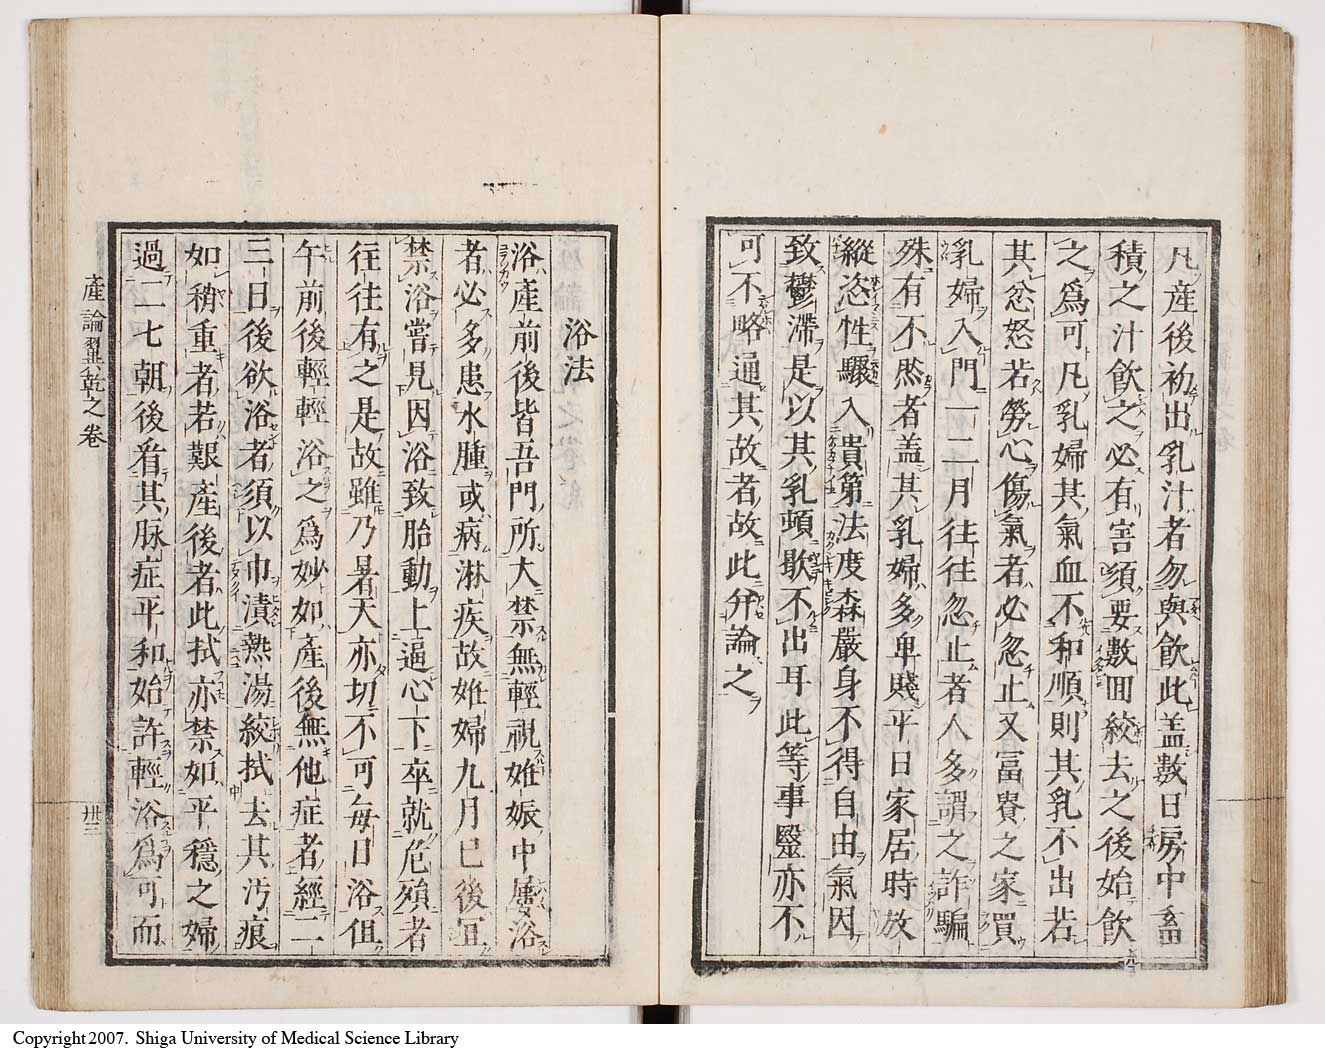 凡産後初出乳汁者勿與飲此盖數日房中畜
積之汁飲之必有害須要數回絞去之後始飲
之爲可凡乳婦其氣血不和順則其乳不出若
其忿怒若勞心傷氣者必忽止又冨貴之家買
乳婦入門一二月往往忽止者人多謂之詐騙
殊有不然者盖其乳婦多卑賤平日家居時放
縱恣性驟入貴第法度森嚴身不得自由氣因
致鬱滯是以其乳頓歇不出耳此等事毉亦不
可不略通其故者故此弁論之
浴法
浴産前後皆吾門所大禁無輕視姙娠中屢浴
者必多患水腫或病淋疾故姙婦九月已後宜
禁浴嘗見因浴致胎動上逼心下卒就危殞者
往往有之是故雖乃暑天亦切不可毎日浴伹
午前後輕輕浴之爲妙如産後無他症者經二
三日後欲浴者須以巾漬熱湯絞拭去其汚痕
如稍重者若艱産後者此拭亦禁如平穩之婦
過二七朝後看其脉症平和始許輕浴爲可而
産論翼乾之卷
卅三
Copyright 2007. Shiga University of Medical Science Library